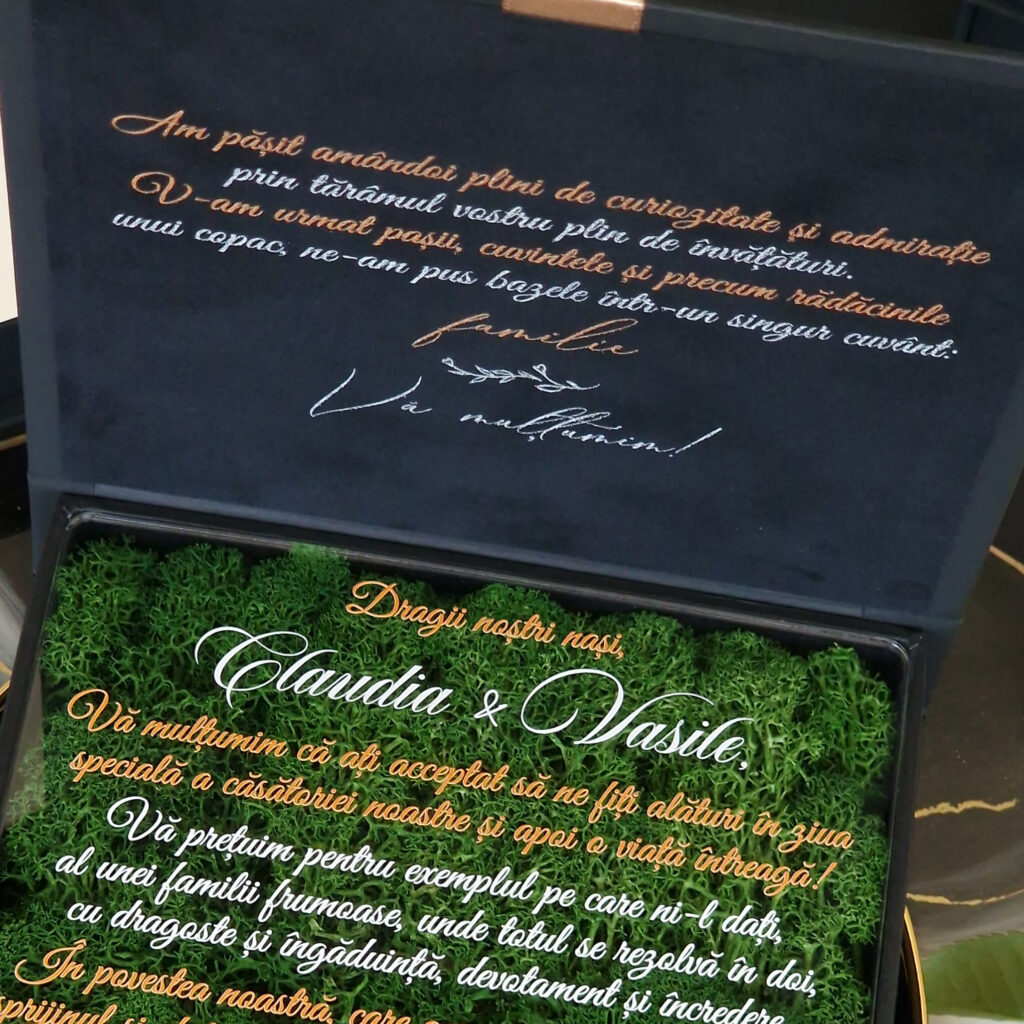 Am pășit amândoi plini de curiozitate și admirație
prin tărâmul vostru plin de învățături.
V-am urmat pașii, cuvintele și precum rădăcinile
unui copac, ne-am pus bazele într-un singur cuvânt:
familie
Vă mulțumim!
Dragii noștri nași,
Claudia & Vasile,
Vă mulțumim că ați acceptat să ne fiți alături în ziua
specială a căsătoriei noastre și apoi o viață întreagă!
Vă prețuim pentru exemplul pe care ni-l dați,
al unei familii frumoase, unde totul se rezolvă în doi,
cu dragoste și îngăduință, devotament și încredere
În povestea noastră, care